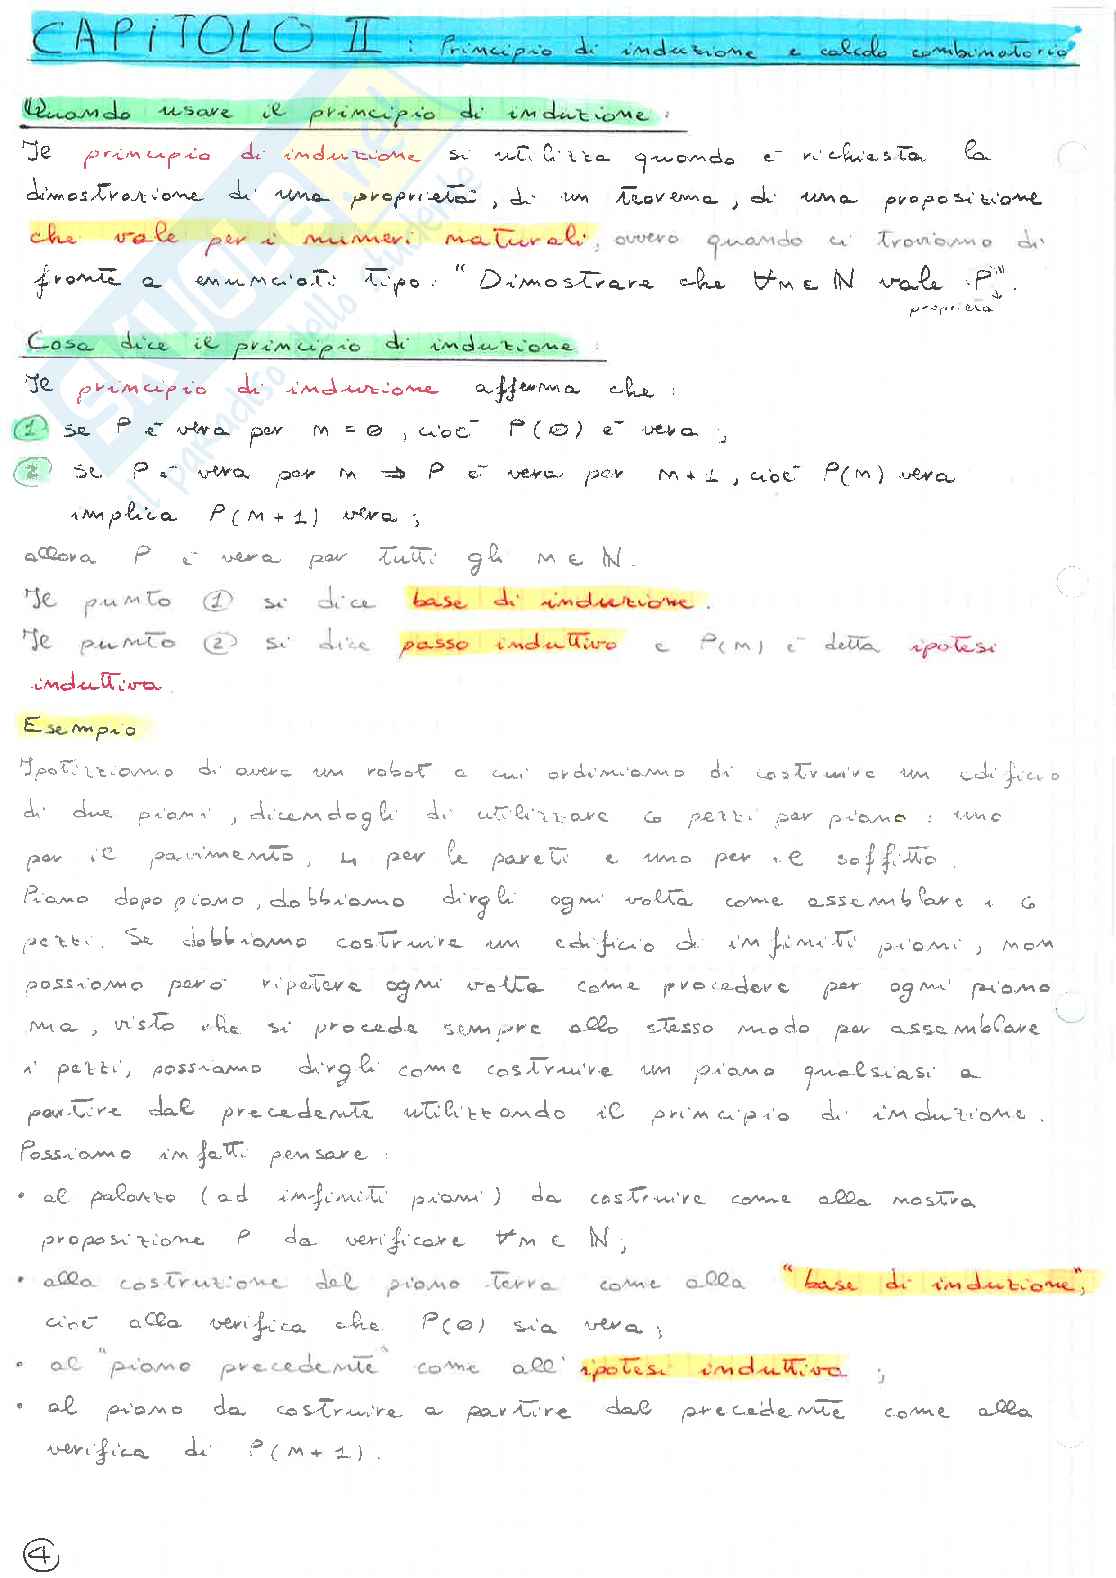 CAPITOLO II : Principio di induzione e calcolo combinatorio
Quando usare il principio di induzione :
Il principio di induzione si utilizza quando è richiesta la
dimostrazione di una proprietà, di un teorema, di una proposizione
che vale per i numeri naturali, ovvero quando ci troviamo di
fronte a enunciati tipo: "Dimostrare che ∀n∈ℕ vale P".
proprietà
Cosa dice il principio di induzione :
Il principio di induzione afferma che :
① se P è vera per n = 0, cioè P(0) è vera ;
② se P è vera per n ⇒ P è vera per n+1, cioè P(n) vera
implica P(n+1) vera ;
allora P è vera per tutti gli n ∈ ℕ.
Il punto ① si dice base di induzione.
Il punto ② si dice passo induttivo e P(n) è detta ipotesi
induttiva.
Esempio
Ipotizziamo di avere un robot a cui ordiniamo di costruire un edificio
di due piani, dicendogli di utilizzare 6 pezzi per piano : uno
per il pavimento, 4 per le pareti e uno per il soffitto.
Piano dopo piano, dobbiamo dirgli ogni volta come assemblare i 6
pezzi. Se dobbiamo costruire un edificio di infiniti piani, non
possiamo però ripetere ogni volta come procedere per ogni piano
ma, visto che si procede sempre allo stesso modo per assemblare
i pezzi, possiamo dirgli come costruire un piano qualsiasi a
partire dal precedente utilizzando il principio di induzione.
Possiamo infatti pensare :
• al palazzo (ad infiniti piani) da costruire come alla nostra
proposizione P da verificare ∀n ∈ ℕ;
• alla costruzione del piano terra come alla "base di induzione",
cioè alla verifica che P(0) sia vera ;
• al "piano precedente" come all'ipotesi induttiva ;
• al piano da costruire a partire dal precedente come alla
verifica di P(n+1).
4